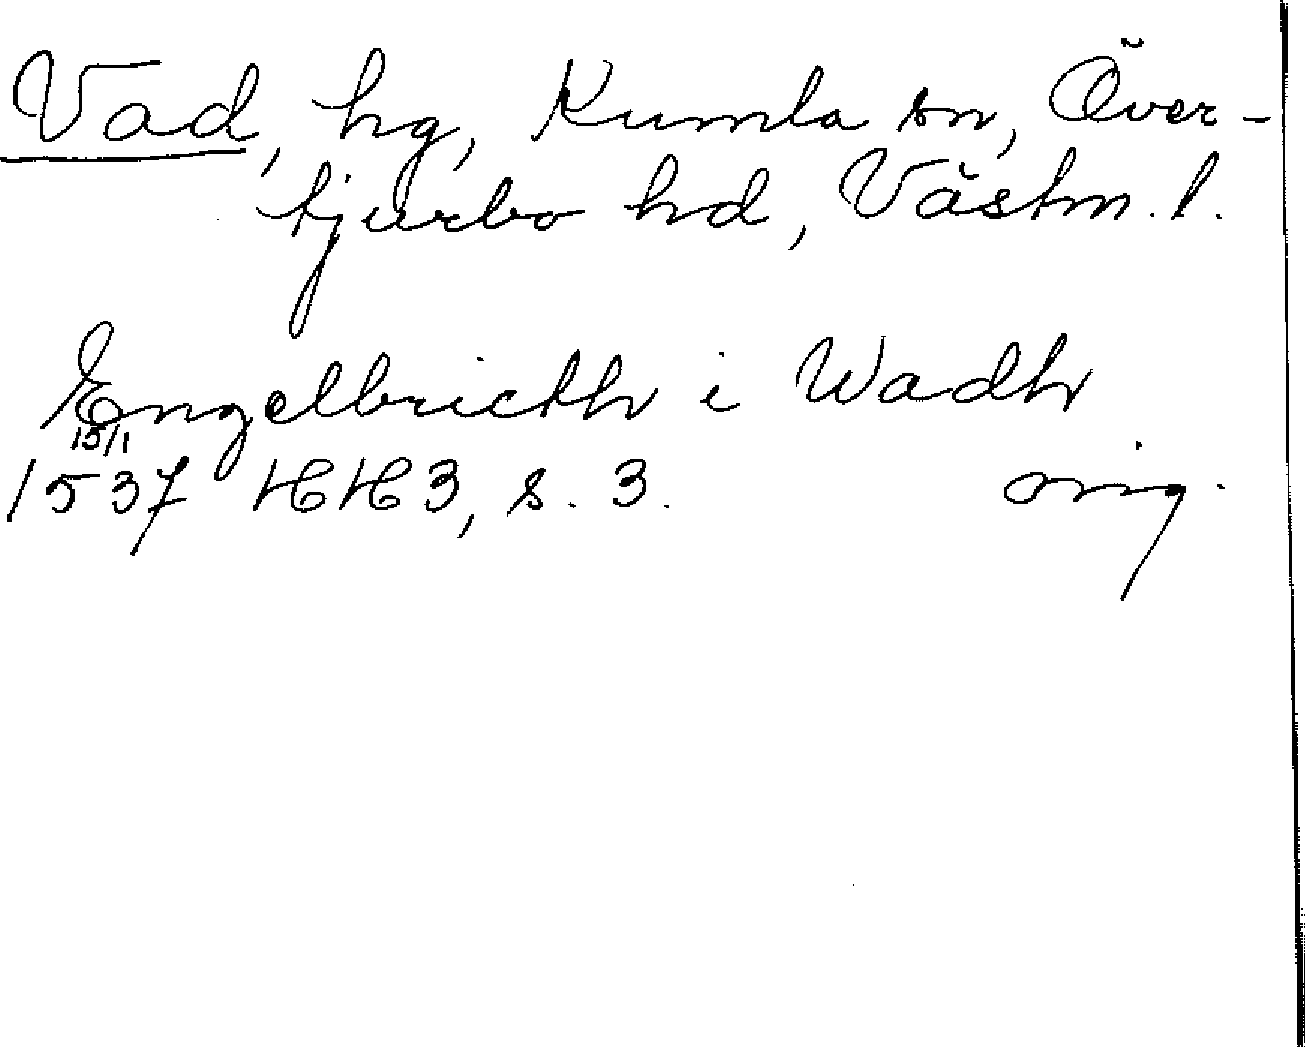 Vad, hg, Kumla sn, Över-
tjurbo hd, Västm. l.
Engelbrickth i Wadh
15/1
1537 HH 3, s. 3. orig.